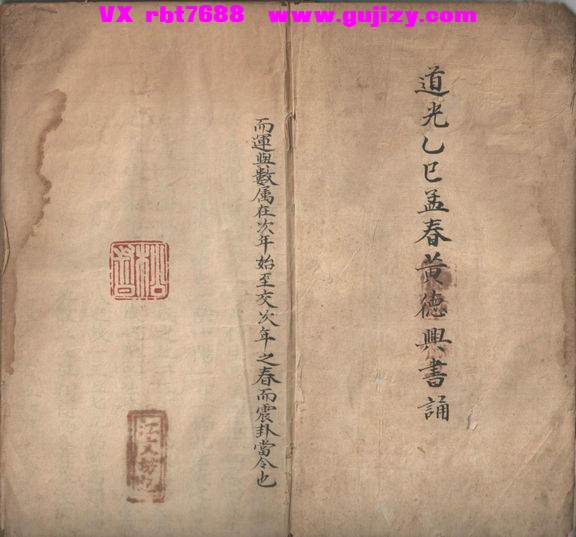 VX rbt7688 www.gujizy.com
道光乙巳孟春黃德興書誦
而運與數属在次年始至交次年之春而震卦當令也